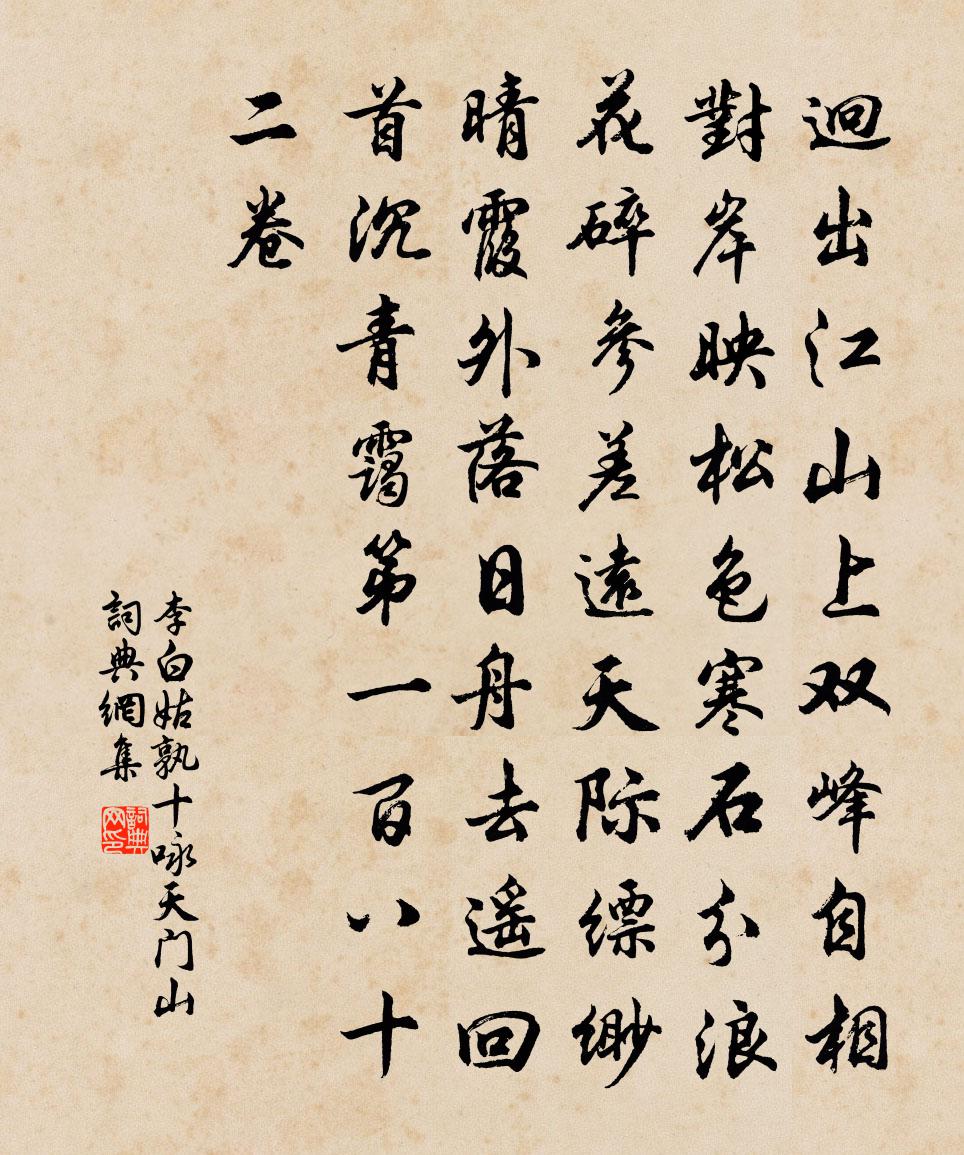 迥出江山上双峰自相
對岸映松色寒石分浪
花碎參差遠天际縹缈
晴霞外落日舟去遥回
首沉青靄第一百八十
二卷
李白姑孰十咏天门山
詞典網集
詞典网印